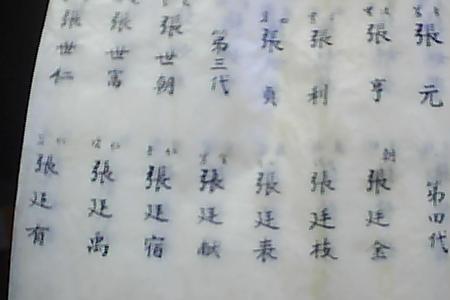 張元
張亨
張利
張貞
第三代
張世朝
張世富
張世仁
第四代
朝
張廷金
張廷枝
張廷表
張廷献
張廷宿
張廷禹
張廷有